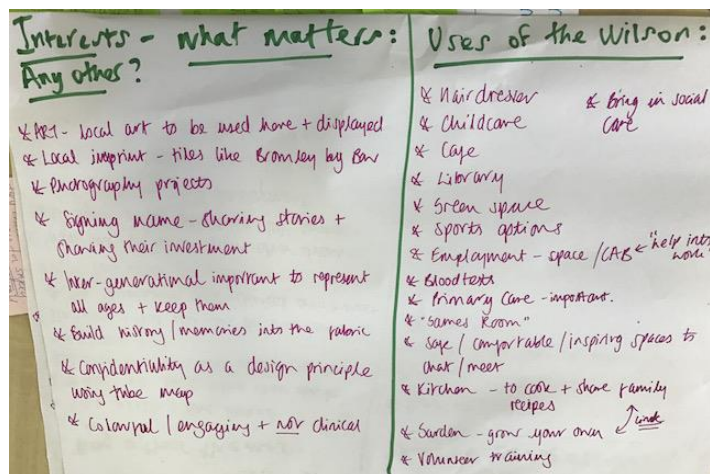 Interests - what matters:
Any other?
* ART - local art to be used here + displayed
* Local imprint - tiles like Bromley by Bow
* Photography projects
* Signing name - sharing stories +
sharing their investment
* Inter-generational important to represent
all ages + keep them
* Build history/memories into the fabric
* Confidentiality as a design principle
using tube map
* Colourful / engaging + not clinical
Uses of the Wilson:
* Hairdresser
* Bring in social
care
* Childcare
* Cafe
* Library
* Green space
* Sports options
* Employment - space / CAB ← "help into
work"
* Blood tests
* Primary Care - important.
* "Games Room"
* Safe / comfortable / inspiring spaces to
chat / meet
* Kitchen - to cook + share family
recipes
links
* Garden - grow your own
* Volunteer training